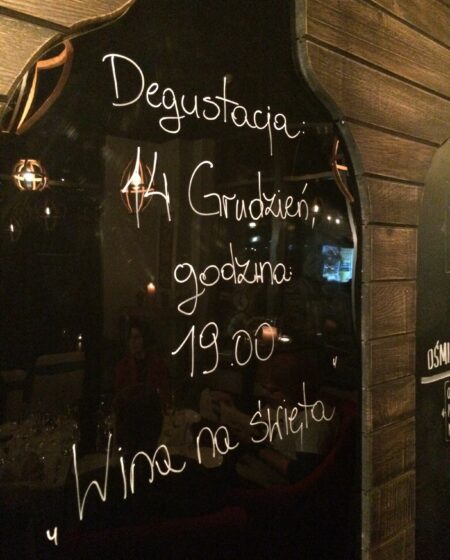 Degustacja:
14 Grudzień,
godzina:
19.00
"Wina na święta"
OŚMI